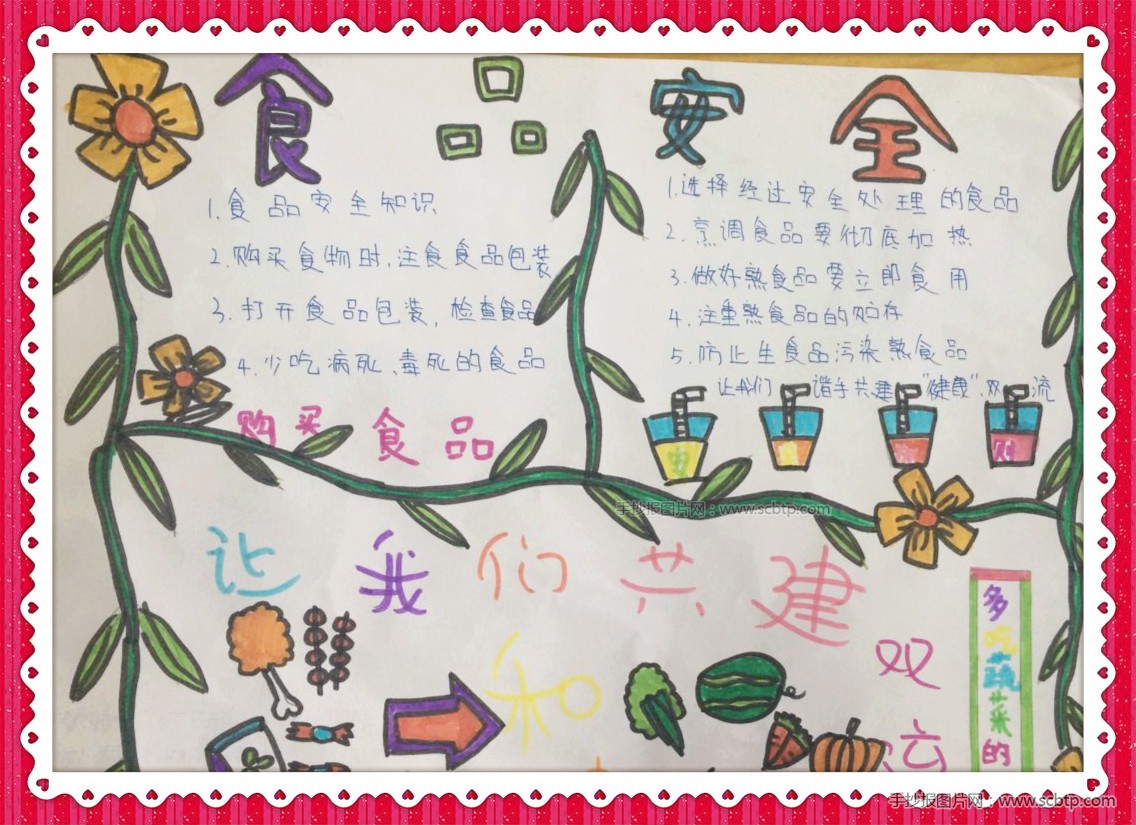 食品安全
1.食品安全知识
2.购买食物时、注食食品包装
3.打开食品包装，检查食品
4.少吃病死、毒死的食品
购买食品
1.选择经过安全处理的食品
2.烹调食品要彻底加热
3.做好熟食品要立即食用
4.注重熟食品的贮存
5.防止生食品污染熟食品
让我们 谐手共建"健康"双 流
手抄报图片网：www.scbtp.com
让我们共建
双流
和
多吃蔬菜的
手抄报图片网：www.scbtp.com